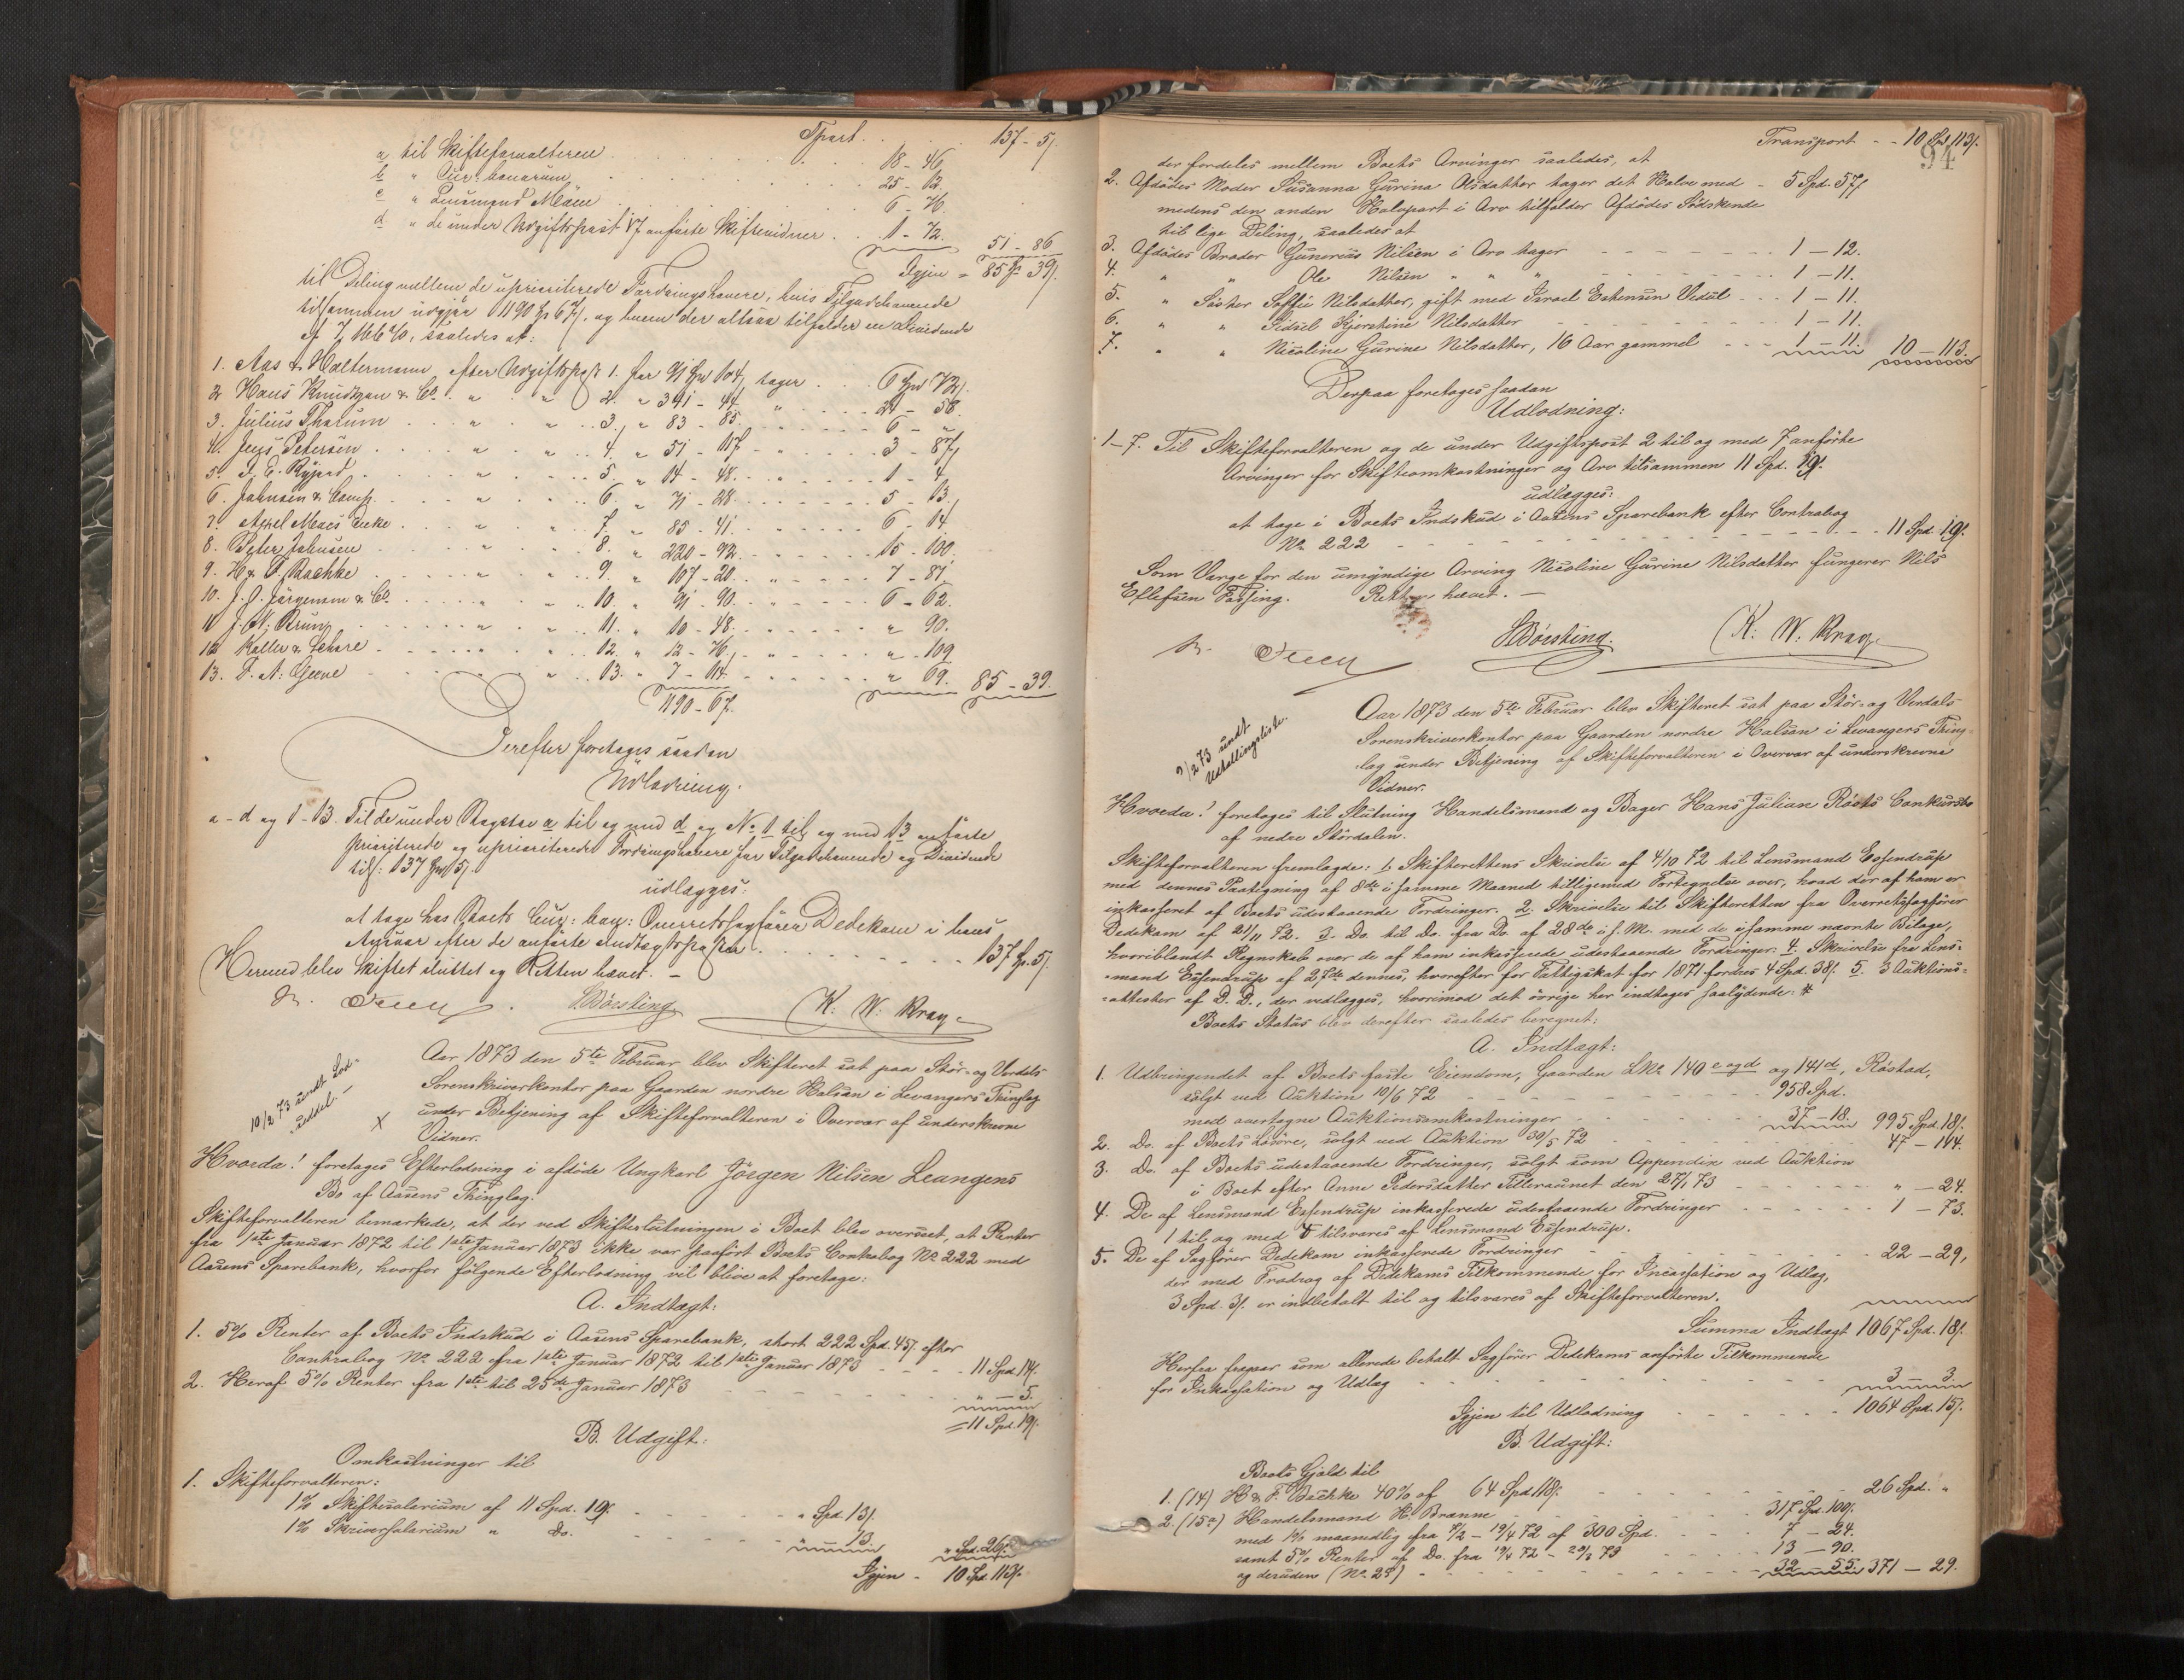 Tpart . . . 137 - 5ẞ.
a til Skifteforvalteren . . . 18 - 46.
b " Cur: bonorum . . . 25 - 12.
c " Lensmand . . . 6 - 76.
d " de under Udgiftspost 17 anførte Skiftevidner . . 1 - 72. 51 - 86
Igjen = 85 Sp 39ẞ.
til Deling mellem de uprioriterede Fordringshavere, hvis Tilgodehavende
tilsammen udgjør 1190 Sp 67ẞ, og hvem der altsaa tilfalder en Dividende
af 7,166 %, saaledes at:
1. Aas & Haltermann efter Udgiftspost 1. for 91 Spd 104, tager . . 6 Spd 72ẞ.
2. Hans Knudtzon & Co. " " 2. " 341 - 44. " . . 24 - 58.
3. Julius Thorum . . " " 3. " 83 - 85. . . 6 - "
4. Jens Petersen . . " " 4. " 51 - 117. . . 3 - 87.
5. . . " " 5. " 14 - 48. . . 1 - 4.
6. Johnsen & Comp. . . " " 6. " 71 - 28. . . 5 - 13.
7. Enke . . " " 7. " 85 - 41. . . 6 - 14.
8. Peter Johnsen . . 8. " 220 - 92. . . 15 - 100.
9. H & F. Bachke . . " 9. " 107 - 20. . . 7 - 81.
10. Jørgensen & Co. . . " 10. " 91 - 90. . . 6 - 62.
11. J. N. Bruun . . " 11. " 10 - 48. . . " 90.
12. . . " 12. " 12 - 76. . . " - 109.
13. F. A. . . " 13. " 7 - 114. . . " 69. 85 - 39.
1190 - 67.
Derefter foretoges saadan
Udlodning.
a - d og 1 - 13. Til de under Bogstav a til og med d og No. 1 til og med 13 anførte
prioriterede og uprioriterede Fordringshavere for Tilgodehavende og Dividende
tils: 137 Spd 5ẞ.
udlægges:
at tage hos Boets Cur: bon: Overretssagfører Dedekam i hans
. . efter de anførte Indtægtsposter . . . 137 Sp. 5ẞ.
Hermed blev Skiftet sluttet og Retten hævet. —
HBørsting K. W. Krag.
10/2 73 sendt Lod-
seddel. —
Aar 1873 den 5te Februar blev Skifteret sat paa Stør- og Verdals
Sorenskriverkontor paa Gaarden nordre Halsan i Levangers Thinglag
under Betjening af Skifteforvalteren i Overvær af underskrevne
Vidner.
Hvorda! foretoges Efterlodning i afdøde Ungkarl Jørgen Nilsen Leangens
Bo af Aasens Thinglag.
Skifteforvalteren bemærkede, at der ved Skifteslutningen i Boet blev overseet, at Renter
fra 1ste Januar 1872 til 1ste Januar 1873 ikke var paaført Boets Contrabog No 222 med
Aasens Sparebank, hvorfor følgende Efterlodning vil blive at foretage:
A. Indtægt:
1. 5% Renter af Boets Indskud i Aasens Sparebank, stort 222 Spd. 45ẞ. efter
Contrabog No 222 fra 1ste Januar 1872 til 1ste Januar 1873 - - 11 Spd. 14ẞ.
2. Heraf 5% Renter fra 1ste til 25de Januar 1873 - - " - 5.
= 11 Spd. 19ẞ.
B. Udgift:
Omkostninger til
1. Skifteforvalteren:
1% Skiftesalarium af 11 Spd. 19ẞ. - - " Spd. 13ẞ.
1% Skriversalarium " Do. - - " 13. " Spd. 26ẞ.
Igjen - 10 Spd. 113ẞ.
94
Transport - - 10 Spd. 113ẞ.
der fordeles mellem Boets Arvinger saaledes, at
2. Afdødes Moder Susanna Gurina Olsdatter tager det Halve med - 5 Spd. 57ẞ
medens den anden Halvpart i Arv tilfalder Afdødes Sødskende
til lige Deling, saaledes at
3. Afdødes Broder Gunerius Nilsen i Arv tager - - 1 - 12.
4. " " Ole Nilsen " " " - - 1 - 11.
5. " Søster Soffie Nilsdatter, gift med Israel Eskensen Vedul - - 1 - 11.
6. " " Sidsel Kjerstine Nilsdatter - - 1 - 11.
7. " " Nicoline Gurine Nilsdatter, 16 Aar gammel - - 1 - 11. 10 - 113.
Derpaa foretoges saadan
Udlodning:
1-7. Til Skifteforvalteren og de under Udgiftspost 2 til og med 7 anførte
Arvinger for Skifteomkostninger og Arv tilsammen 11 Spd. 19ẞ.
udlægges:
at tage i Boets Indskud i Aasens Sparebank efter Contrabog
No 222 - - - 11 Spd. 19ẞ.
Som Værge for den umyndige Arving Nicoline Gurine Nilsdatter fungerer Nils
Ellefsen Fossing. Retten hævet. —
HBørsting. K. W. Krag.
9/2 73 sendt
Udtællingsliste.
Aar 1873 den 5te Februar blev Skifteret sat paa Stør- og Verdals
Sorenskriverkontor paa Gaarden nordre Halsan i Levangers Thing-
lag under Betjening af Skifteforvalteren i Overvær af underskrevne
Vidner.
Hvorda! foretoges til Slutning Handelsmand og Bager Hans Julian Røsts Conkursbo
af nedre Stördalen.
Skifteforvalteren fremlagde: 1. Skifterettens Skrivelse af 4/10 72 til Lensmand Essendrup
med dennes Paategning af 8de i samme Maaned tilligemed Fortegnelse over, hvad der af ham er
inkasseret af Boets udestaaende Fordringer. 2. Skrivelse til Skifteretten fra Overretssagfører
Dedekam af 21/11 72. 3. Do. til Do. fra Do. af 28de i s. M. med de i samme nævnte Bilage,
hvoriblandt Regnskab over de af ham inkasserede udestaaende Fordringer. 4. Skrivelse fra Lens-
mand Essendrup af 27de dennes, hvorefter for Fattigskat for 1871 fordres 4 Spd. 38ẞ. 5. 3 Auktions-
attester af D. D., der vedlægges, hvorimod det øvrige her indtages saalydende: #
Boets Status blev derefter saaledes beregnet:
A. Indtægt:
1. Udbringendet af Boets faste Eiendom, Gaarden LNo 140 c og d og 141 d, Røstad,
solgt ved Auktion 10/6 72 - - 958 Spd.
med overtagne Auktionsomkostninger - - 37 - 18. 995 Spd. 18ẞ.
2. Do. af Boets Løsøre, solgt ved Auktion 30/5 72 - - 47 - 114.
3. Do. af Boets udestaaende Fordringer, solgt som Appendix ved Auktion
i Boet efter Anne Pedersdatter Tilleraunet den 27/1 73 - - " - 24.
4. De af Lensmand Essendrup inkasserede udestaaende Fordringer - - 1 - 73.
1 til og med 4 tilsvares af Lensmand Essendrup.
5. De af Sagfører Dedekam inkasserede Fordringer - - 22 - 29,
der med Fradrag af Dedekams Tilkommende for Incassation og Udlæg,
3 Spd. 3ẞ. er indbetalt til og tilsvares af Skifteforvalteren.
Summa Indtægt 1067 Spd. 18ẞ.
Herfra fragaar som allerede betalt Sagfører Dedekams anførte Tilkommende
for Inkassation og Udlæg - - 3 - 3.
Igjen til Udlodning - - 1064 Spd. 15ẞ.
B. Udgift:
Boets Gjæld til
1. (14) H & F. Bachke 40% af 64 Spd 118ẞ. - - 26 Spd. "
2. (15a) Handelsmand H. Brænne - - 317 Spd. 100ẞ.
med 1% maanedlig fra 7/2 - 19/4 72 af 300 Spd. - - 7 - 24.
samt 5% Renter af Do. fra 19/4 72 - 20/3 73 - - 13 - 90.
og desuden (No. 25) - - 32 - 55. 371 - 29.